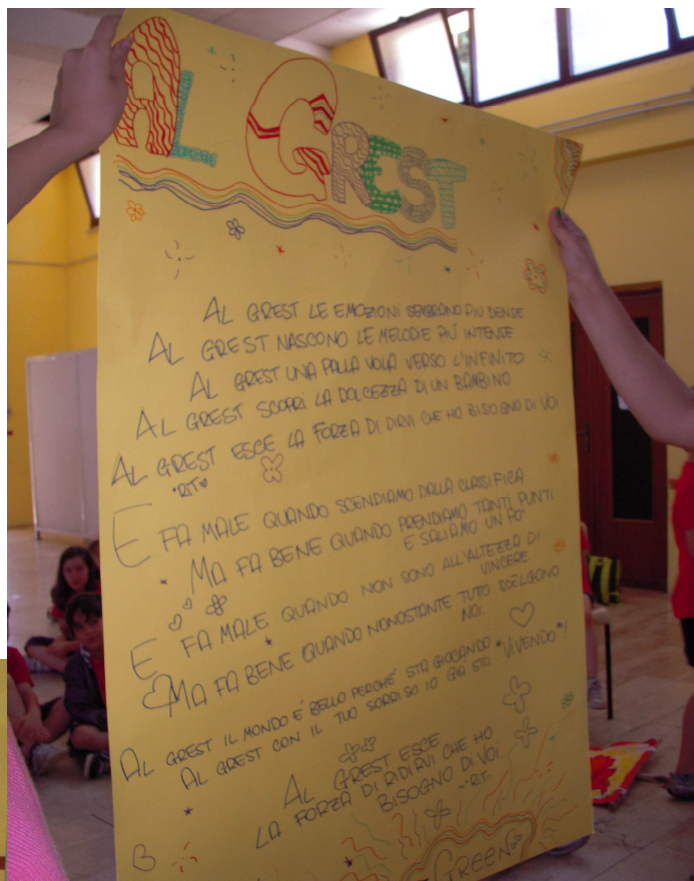 AL GREST
AL GREST LE EMOZIONI SEMBRANO PIÙ DENSE
AL GREST NASCONO LE MELODIE PIÙ INTENSE
AL GREST UNA PALLA VOLA VERSO L'INFINITO
AL GREST SCOPRI LA DOLCEZZA DI UN BAMBINO
AL GREST ESCE LA FORZA DI DIRVI CHE HO BISOGNO DI VOI
•RIT•
E FA MALE QUANDO SCENDIAMO DALLA CLASSIFICA
MA FA BENE QUANDO PRENDIAMO TANTI PUNTI
E SALIAMO UN PO'
E FA MALE QUANDO NON SONO ALL'ALTEZZA DI
VINCERE
MA FA BENE QUANDO NONOSTANTE TUTO SCELGONO
NOI
AL GREST IL MONDO É BELLO PERCHÉ STA GIOCANDO
AL GREST CON IL TUO SORRISO IO GIÀ STO "VIVENDO"!
AL GREST ESCE
LA FORZA DI RIDIRVI CHE HO
BISOGNO DI VOI
•RIT•
GREEN